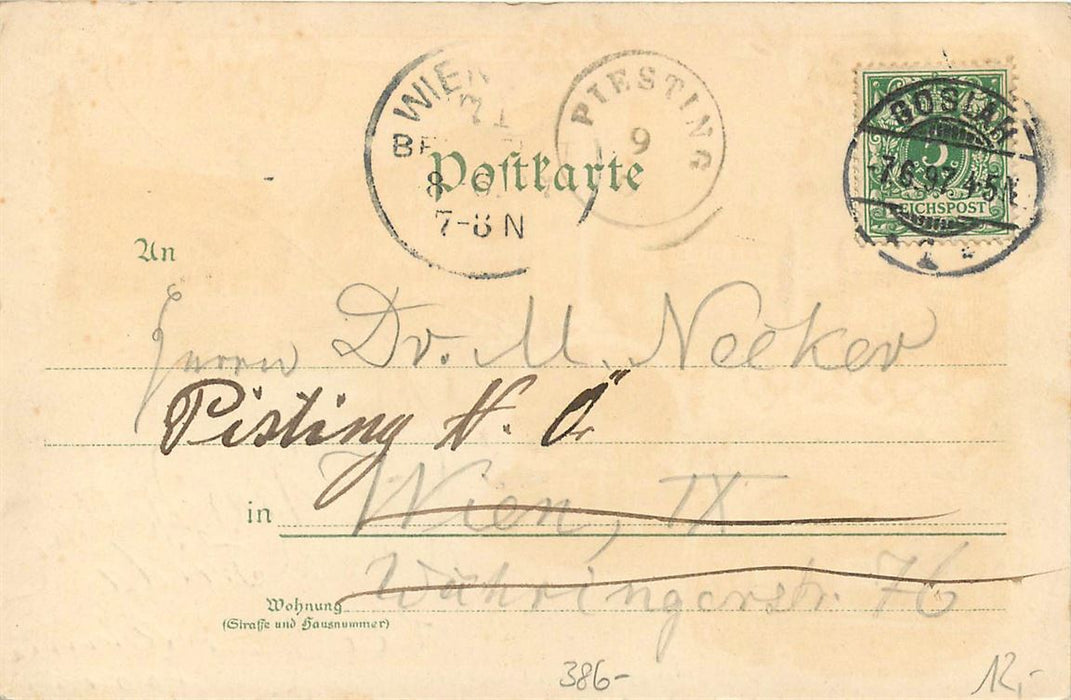 WIEN
PIESTING
9
BE
8 6
7-8 N
GOSLAR
5
7.6.97. 4-5 N.
REICHSPOST
1
Postkarte
An
Herrn Dr. M. Necker
Pisting N. Ö
in Wien, IX
Währingerstr. 76
Wohnung
(Straße und Hausnummer)
386-
12,-